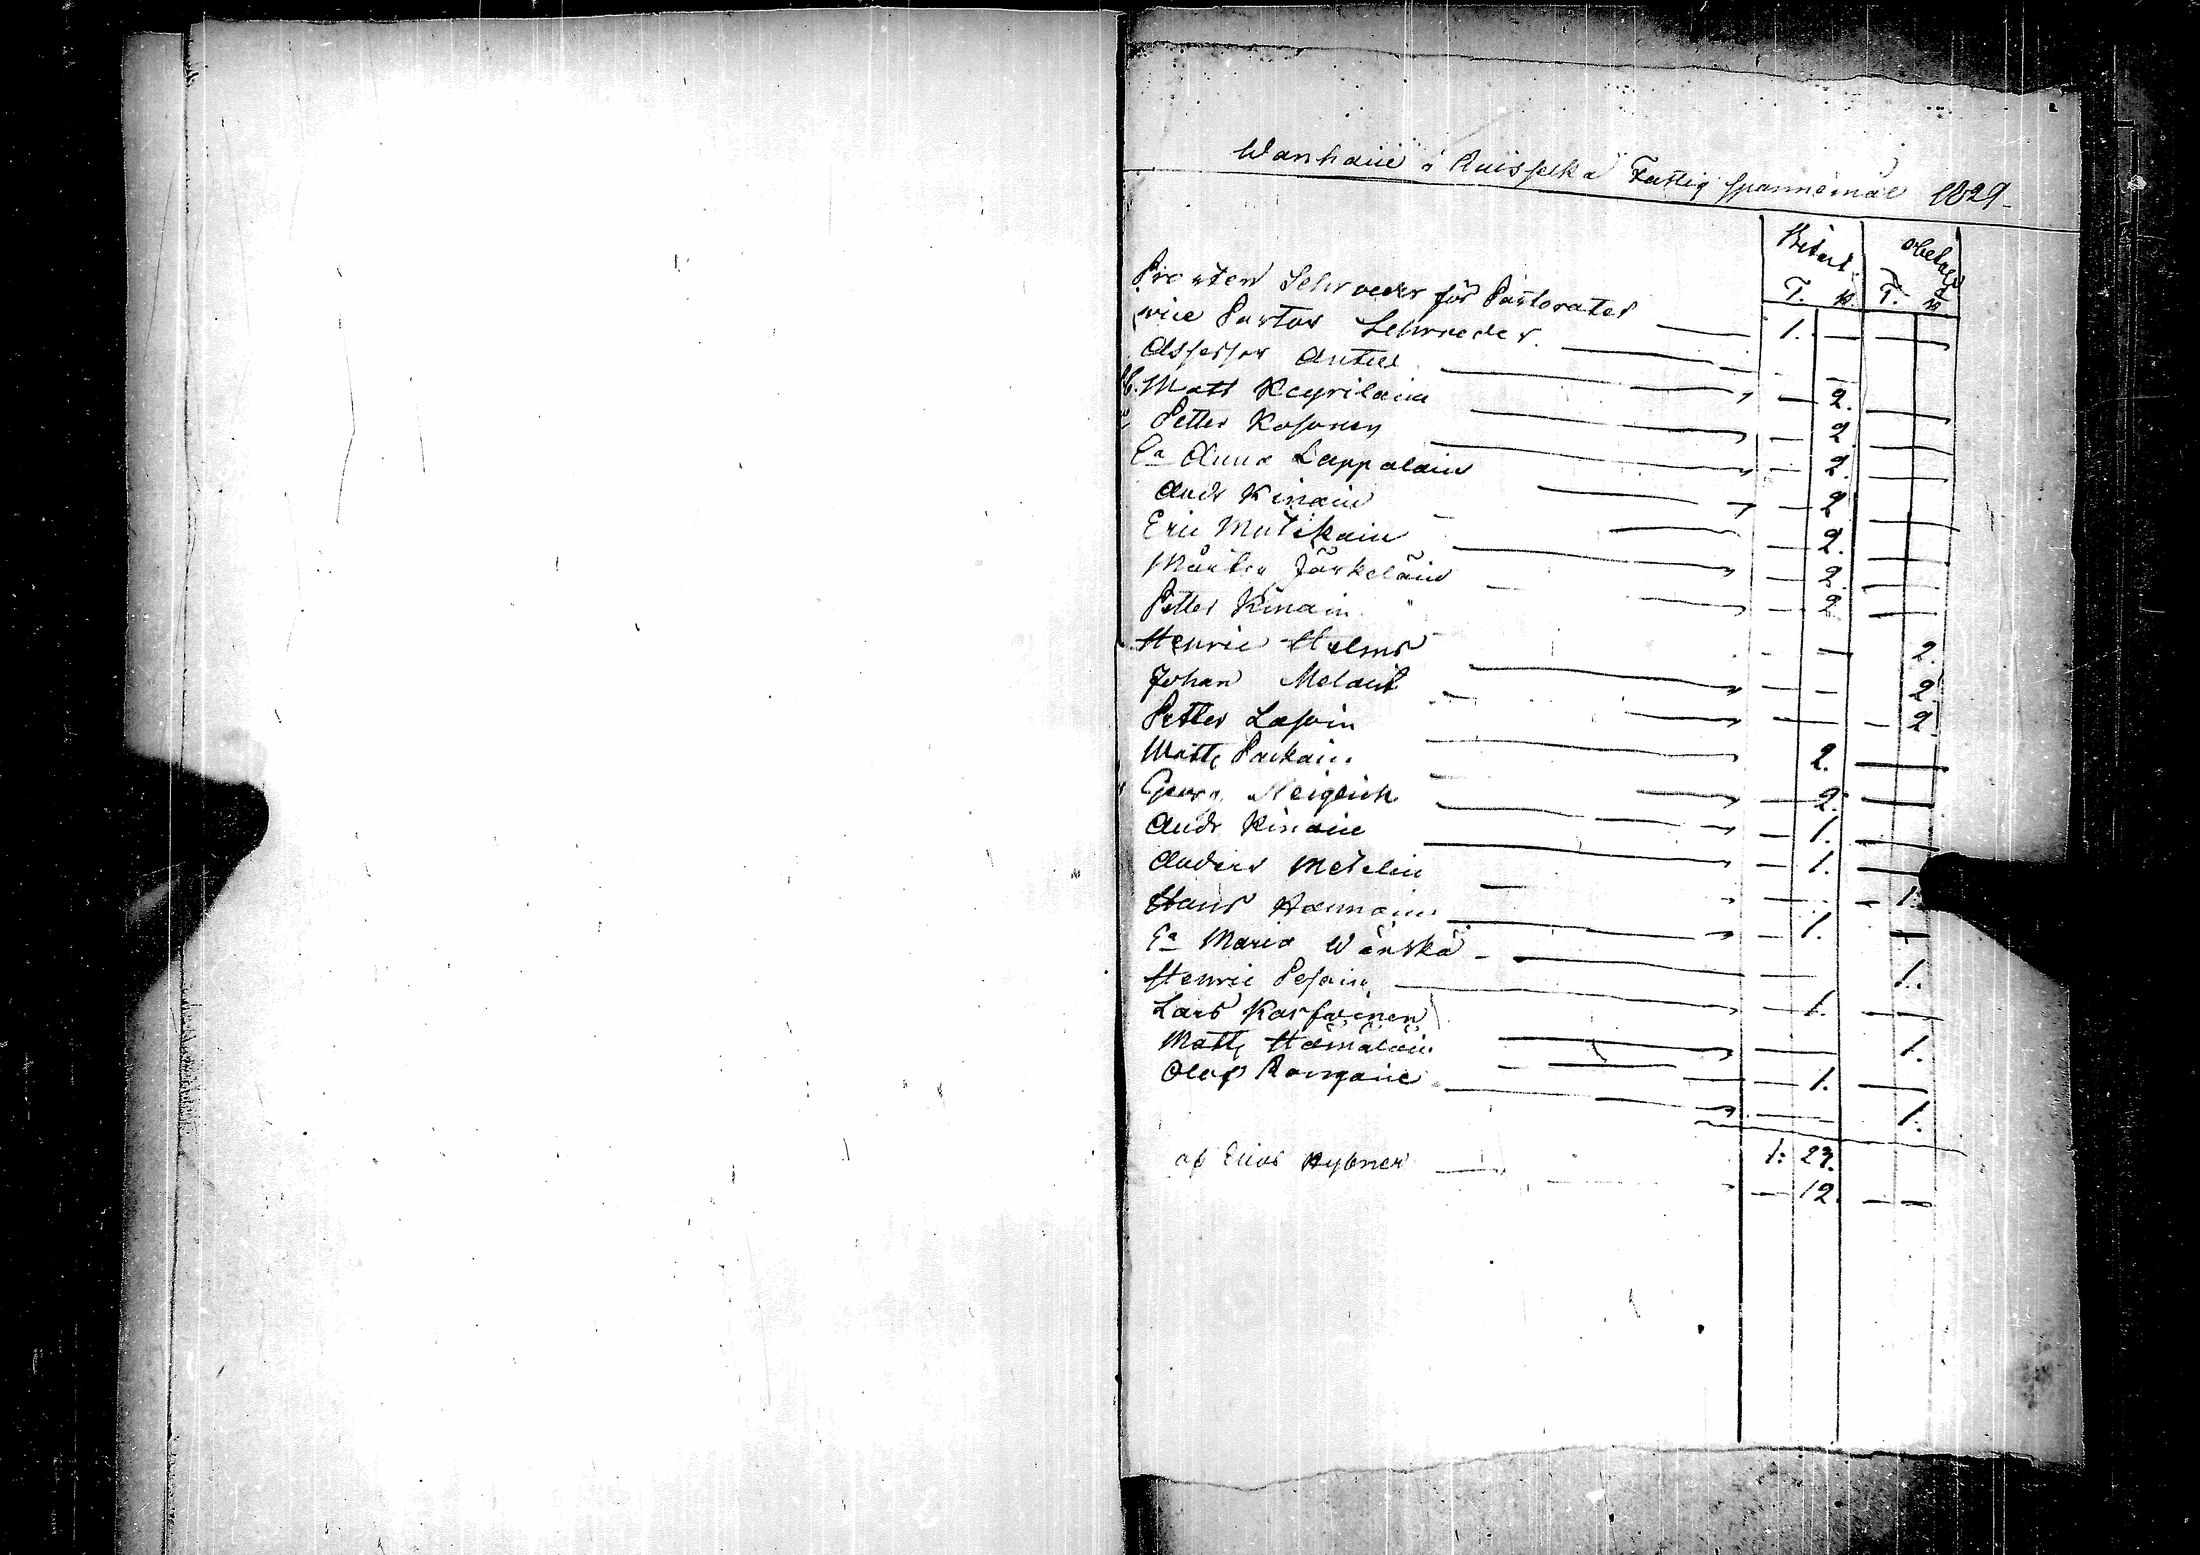 Wanhain o Ruisselkä Fattig spannemål 1829
Betalt obetalt
T. K. T. K.
Prosten Schroeder för Pastoratet 1. —
vice Pastor Schroeder — —
Assessor Antell — 2. —
Matt Keyriläin — 2. —
Petter Kosonen — 2. —
Ea Anna Lappalain — 2 —
Andr Kinain — 2. —
Eric Mutikain — 2. —
Mårten Järkeläin — 2 —
Petter Kinain — — 2.
Henric Holmr — — 2
Johan Melant — — 2
Petter Lasoin 2. —
Matts Parkain — 2. —
Georg Neiglick — 1. —
Andr Kinain — 1. —
Anders Metelin — — 1.
Hans Hannain — 1. —
Ea Maria Wänskä — 1.
Henric Pesoin — 1. —
Lars Karfwinen — 1.
Matts Hämäläin — 1. —
Olof Rongain — 1.
1: 23.
af Elias Nybner — 12. —